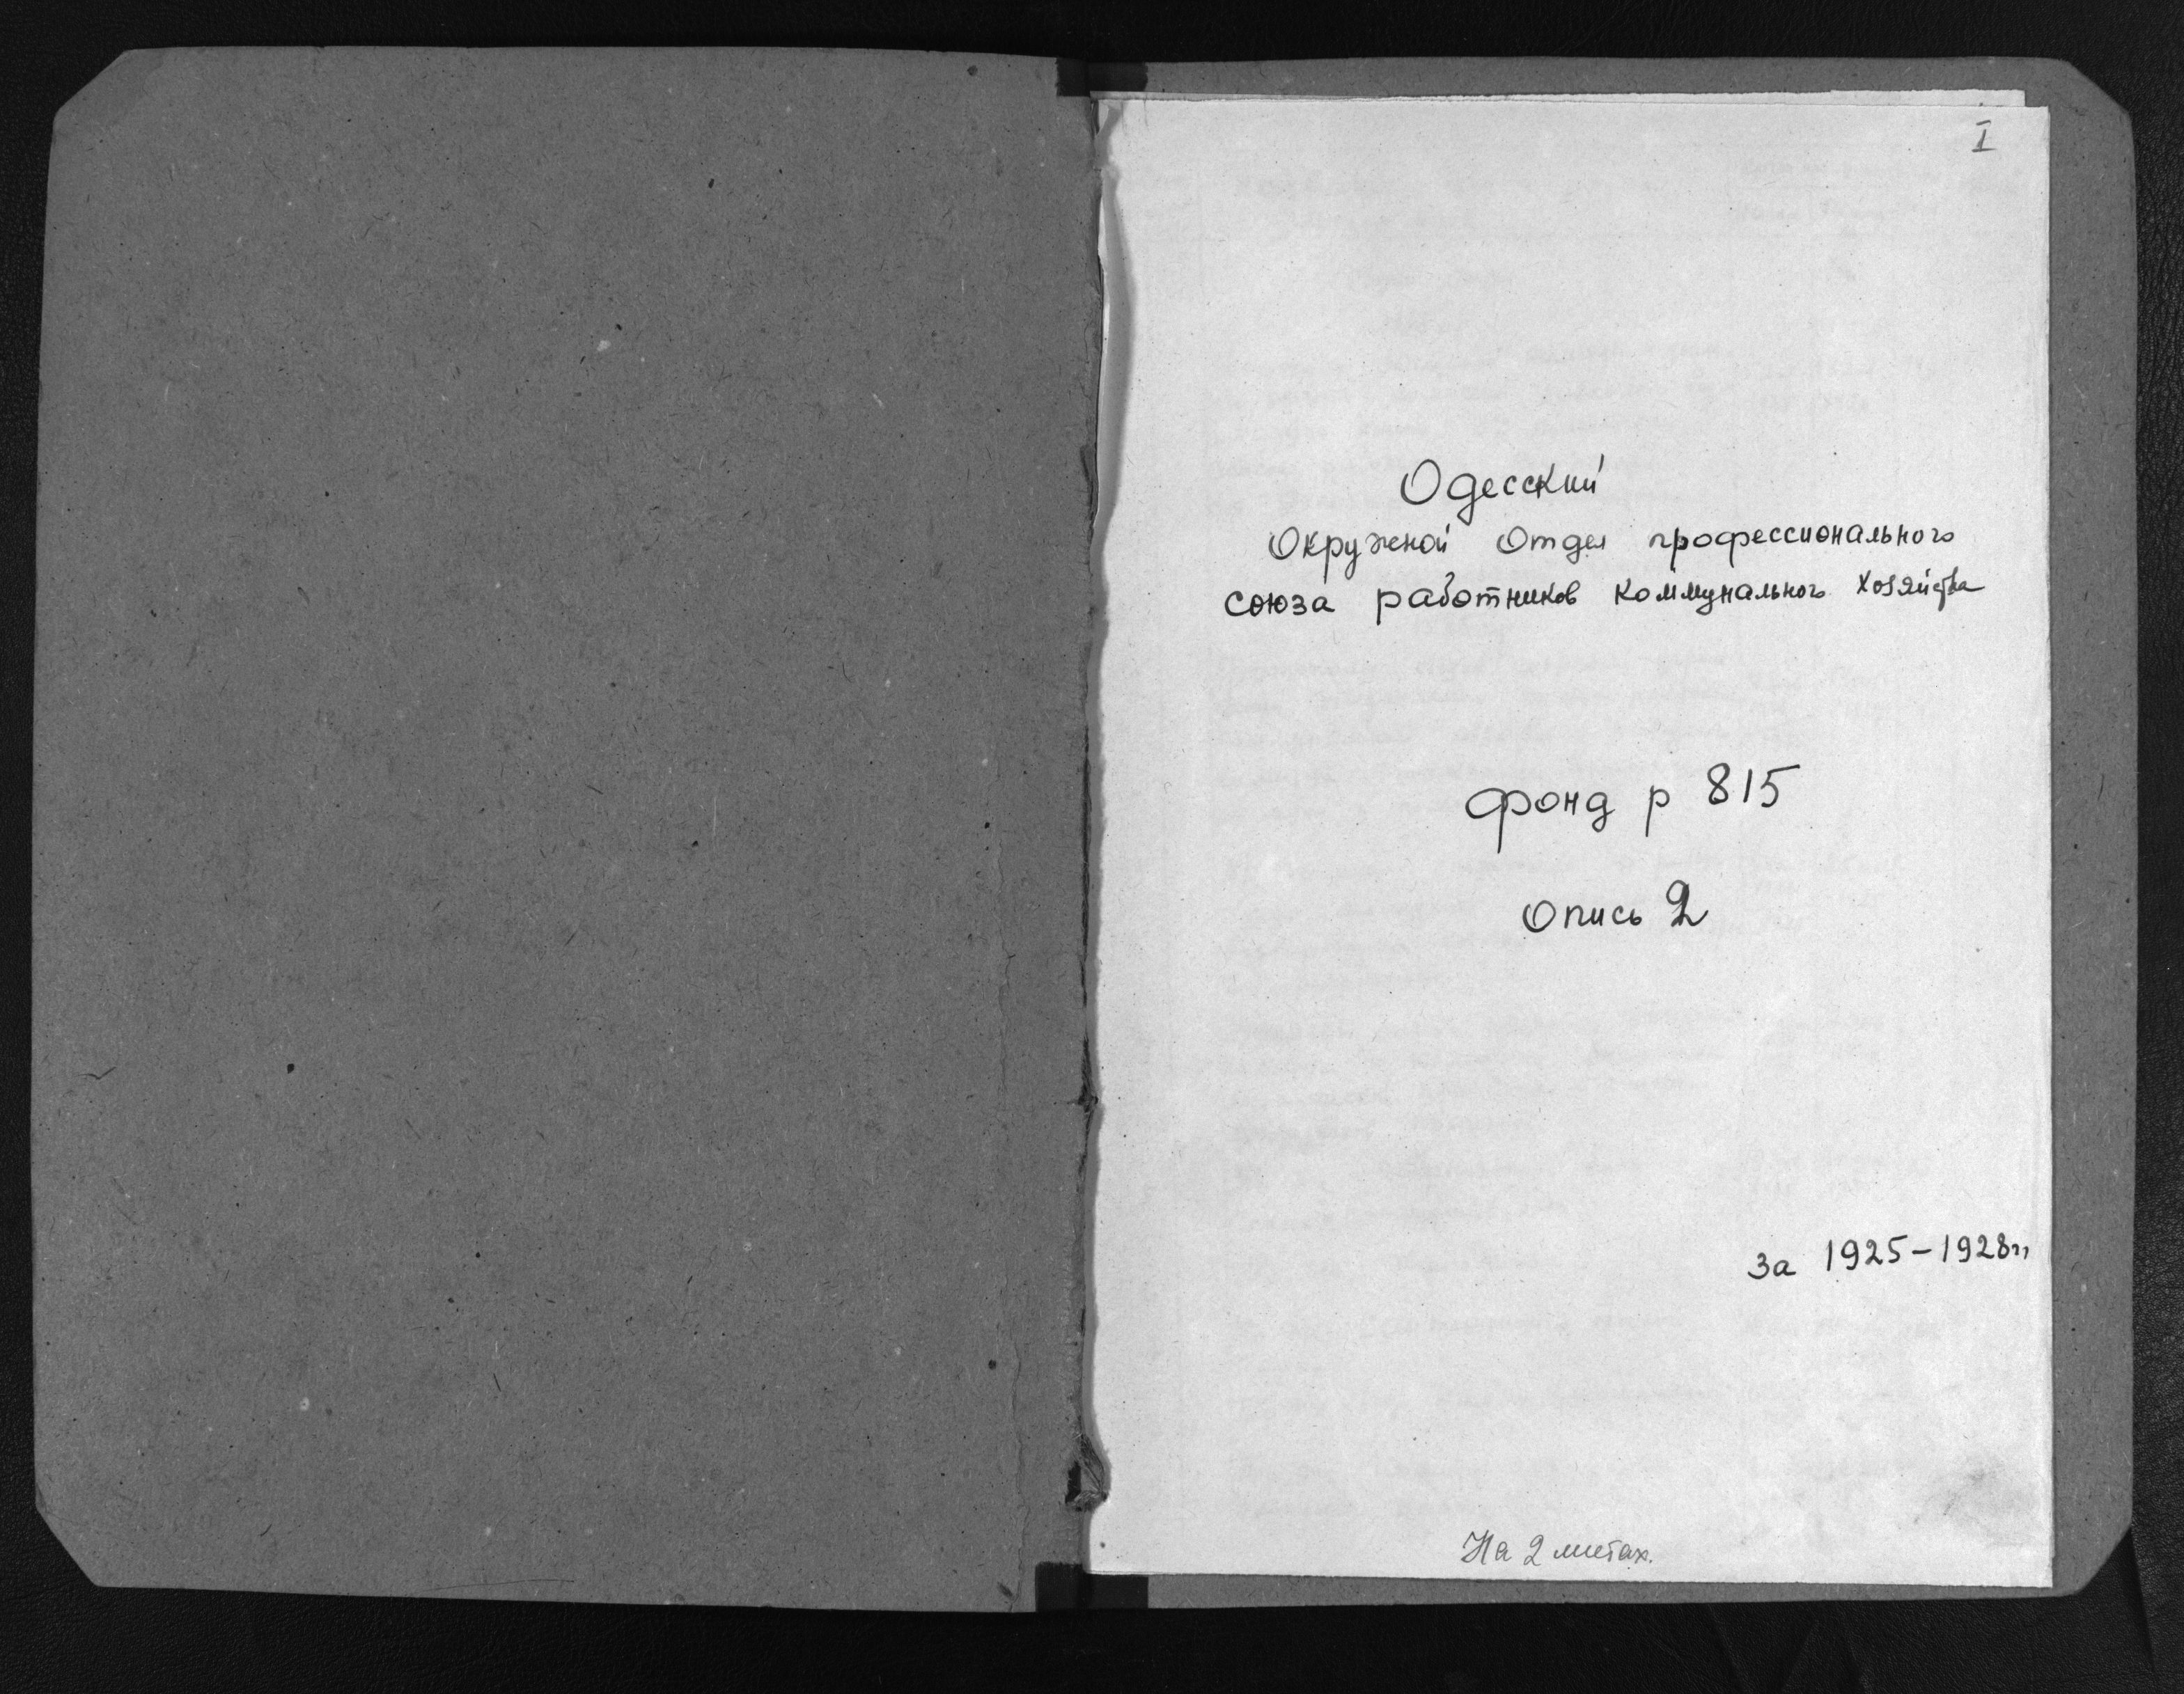 I
Одесский
Окружной Отдел профессионального
союза работников коммунального хозяйства
фонд р 815
Опись 2
за 1925-1928гг
На 2 листах.